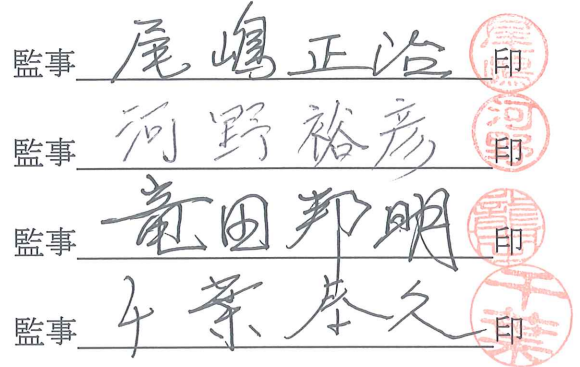 監事 尾嶋正治 印
監事 河野裕彦 印
監事 竜田邦明 印
監事 千葉恭久 印